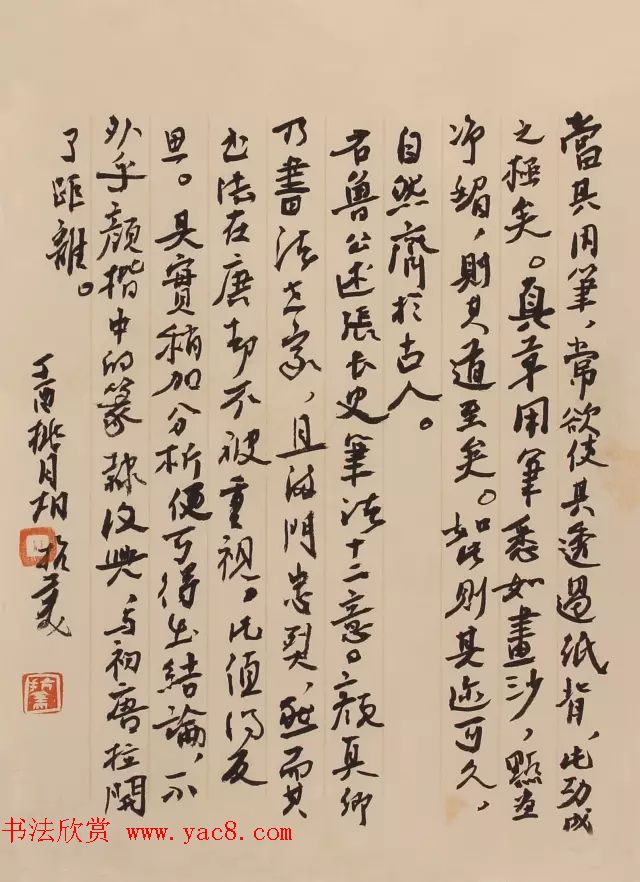 當其用筆，常欲使其透過紙背，此功成
之極矣。真草用筆悉如畫沙，點畫
净媚，則其道至矣。如此則其迹可久，
自然齊於古人。
右魯公述張长史筆法十二意。顏真卿
乃書法世家，且滿門忠烈，然而其
书法在唐却不被重視。此值得反
思。其實稍加分析便可得出結論，不
外乎顏楷中的篆隸復興，与初唐拉開
了距離。
丁酉桃月胡抗美
书法欣赏 www.yac8.com